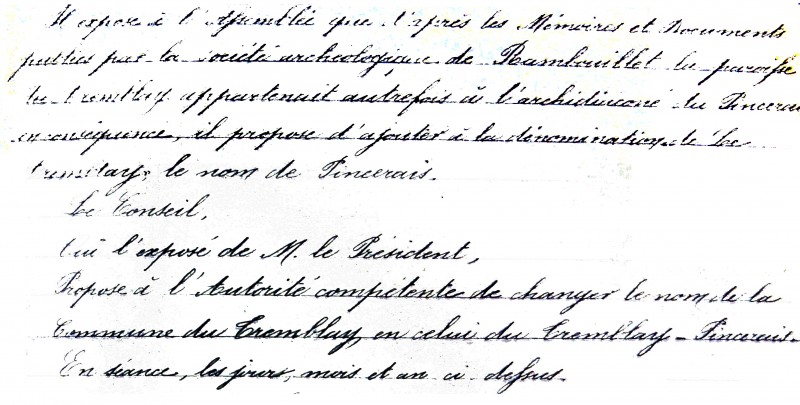 Il expose à l'Assemblée que d'après les Mémoires et Documents
publiés par la société archéologique de Rambouillet la paroisse
du tremblay appartenait autrefois à l'archidiaconé du Pincerais
en conséquence, il propose d'ajouter à la dénomination de Le
tremblay, le nom de Pincerais.
Le Conseil,
Ouï l'exposé de M. le Président,
Propose à l'Autorité compétente de changer le nom de la
Commune du Tremblay en celui du Tremblay-Pincerais.
En séance, les jours, mois et an ci-dessus.